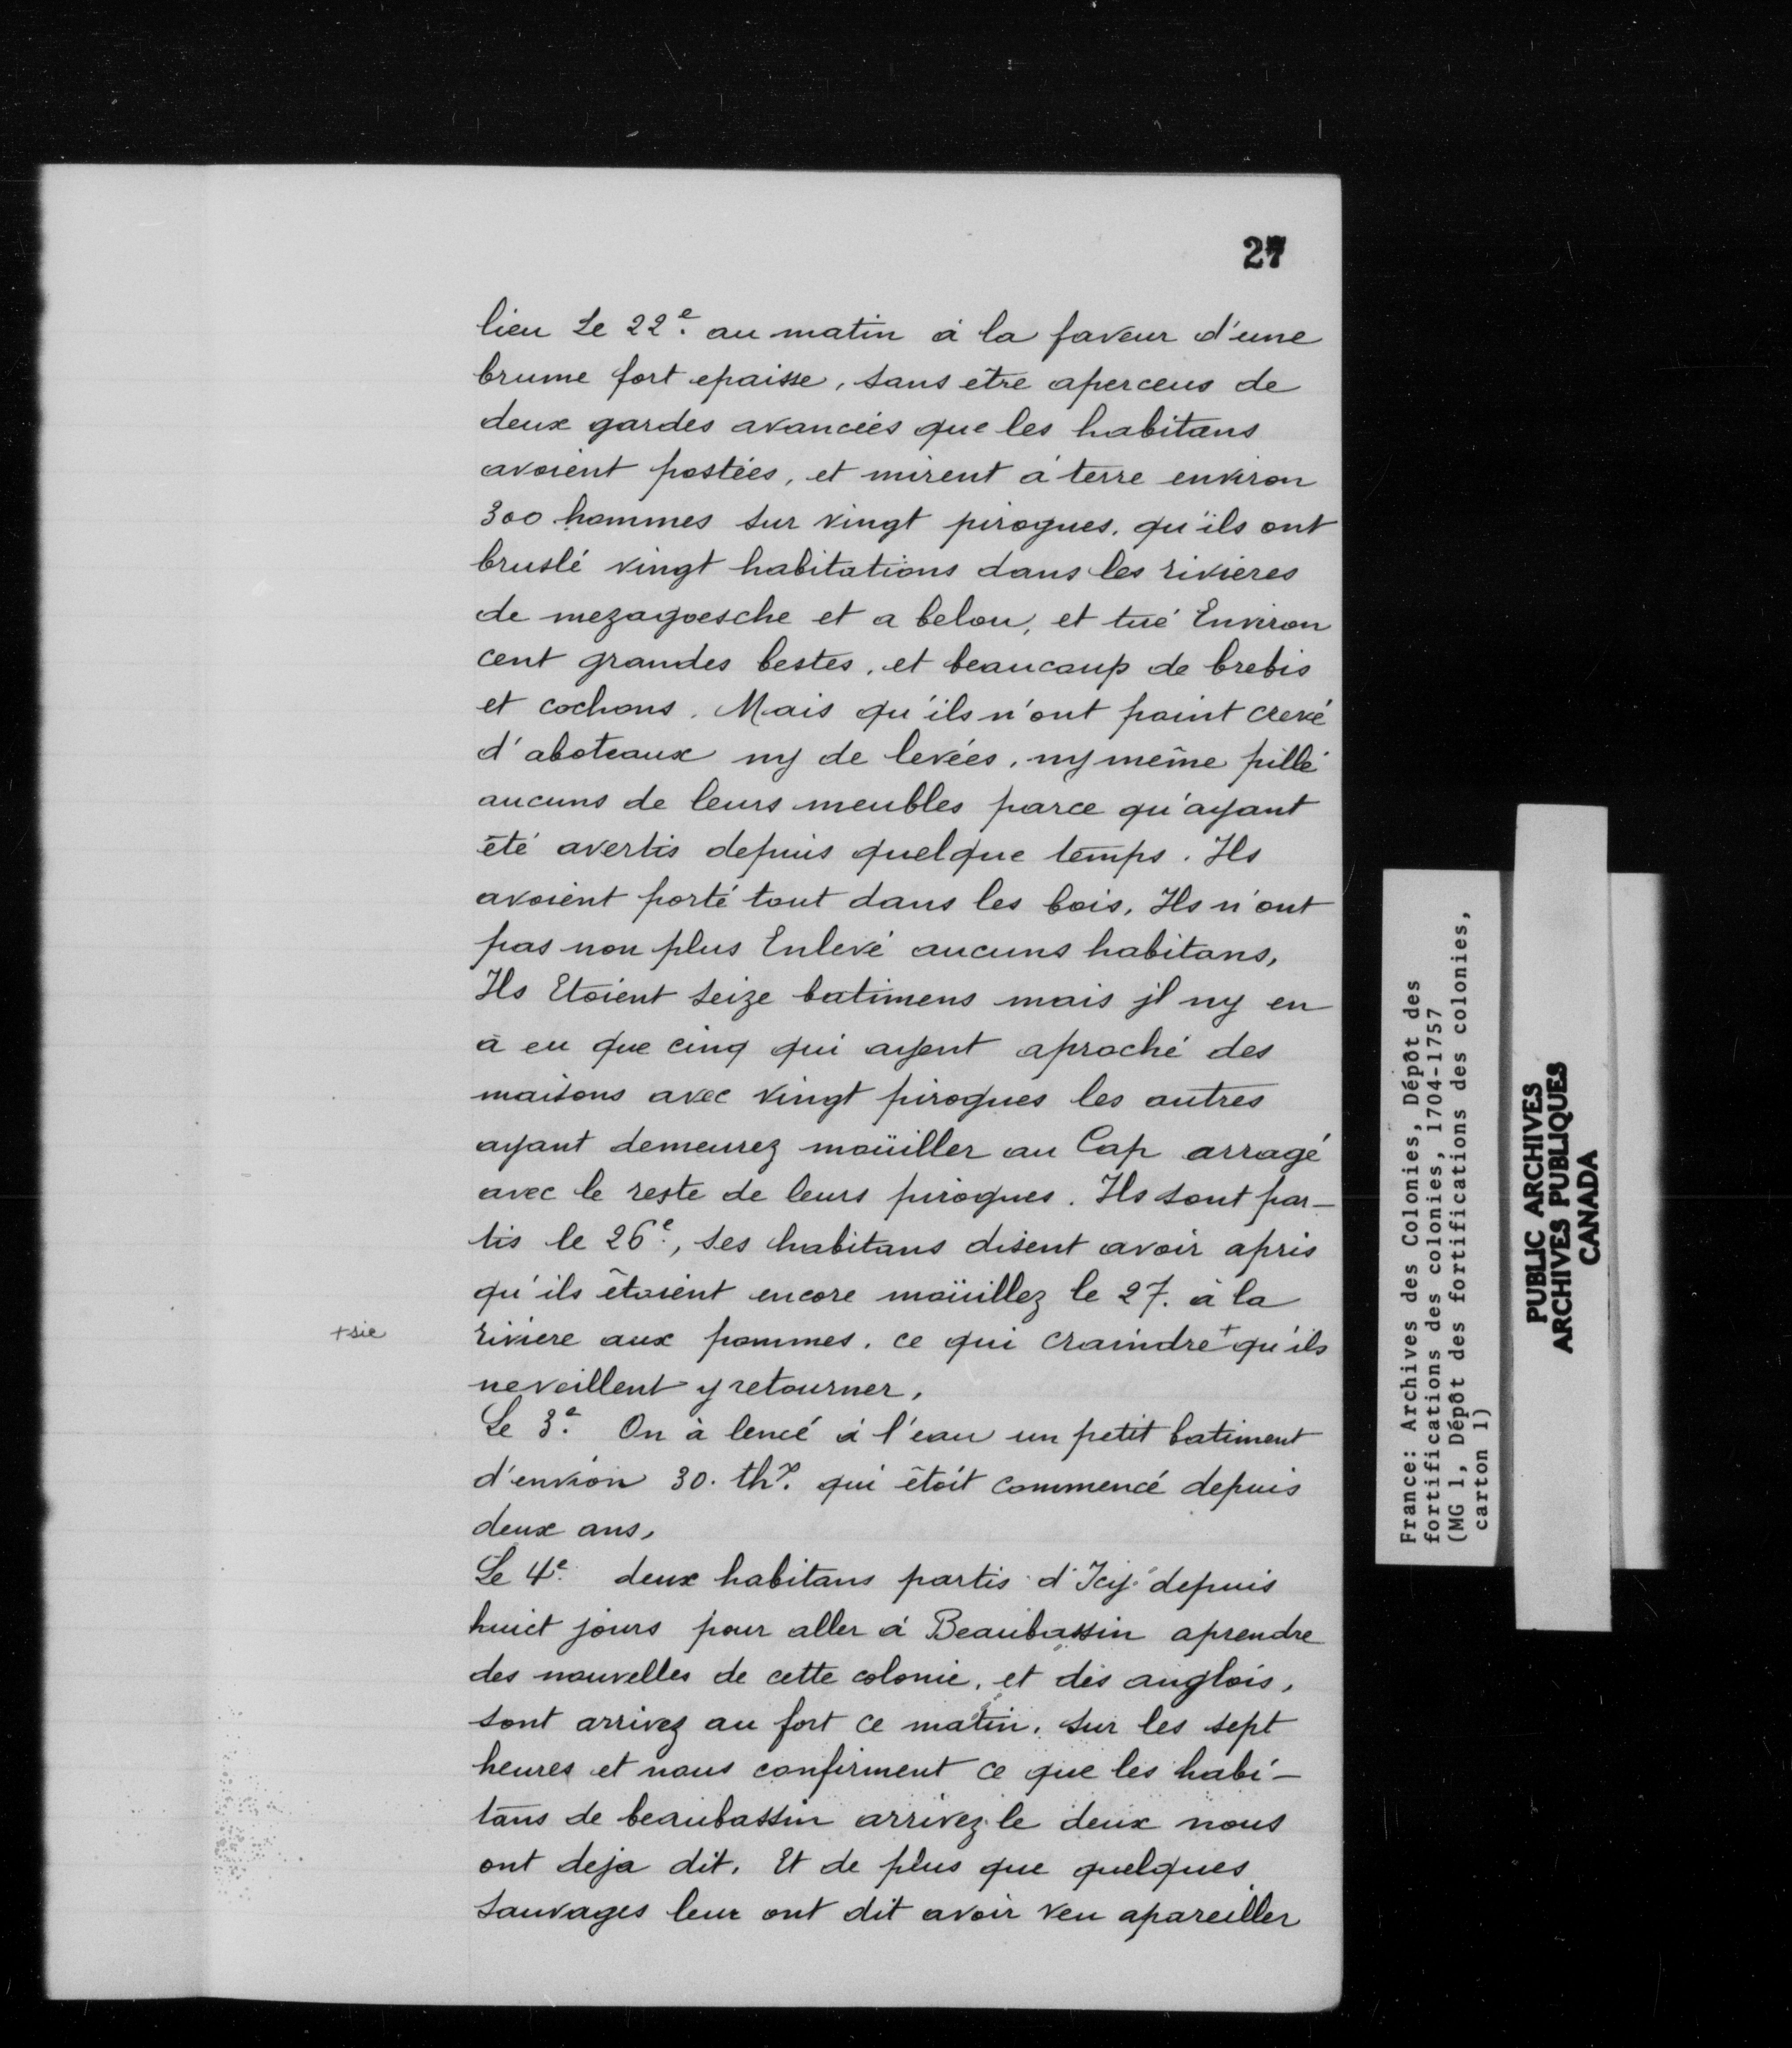 27
lieu Le 22e. au matin à la faveur d'une
brume fort epaisse, sans etre aperceus de
deux gardes avanceés que les habitans
avoient posteés, et mirent à terre environ
300 hommes sur vingt pirogues, qu'ils ont
bruslé vingt habitations dans les rivieres
de mezagoesche et a belou, et tué Environ
cent grandes bestes, et beaucoup de brebis
et cochons. Mais qu'ils n'ont point crevé
d'aboteaux ny de leveés, ny même pillé
aucuns de leurs meubles parce qu'ayant
été avertis depuis quelque temps. Ils
avoient porté tout dans les bois, Ils n'ont
pas non plus Enlevé aucuns habitans,
Ils Etoient seize batimens mais jl ny en
à eu que cinq qui ayent aproché des
maisons avec vingt pirogues les autres
ayant demeurez moüiller au Cap arragé
avec le reste de leurs pirogues. Ils sont par-
tis le 26e., ses habitans disent avoir apris
qu'ils étoient encore moüillez le 27. à la
+sic
riviere aux pommes. ce qui craindre + qu'ils
neveillent y retourner.
Le 3e. On à lencé à l'eau un petit batiment
d'envion 30. thx. qui étoit commencé depuis
deux ans,
Le 4e. deux habitans partis d'Icy depuis
huict jours pour aller à Beaubassin aprendre
des nouvelles de cette colonie, et des anglois,
sont arrivez au fort ce matin, sur les sept
heures et nous confirment ce que les habi-
tans de beaubassin arrivez le deux nous
ont deja dit. Et de plus que quelques
sauvages leur ont dit avoir veu apareiller
France: Archives des Colonies, Dépôt des
fortifications des colonies, 1704-1757
(MG 1, Dépôt des fortifications des colonies,
carton 1)
PUBLIC ARCHIVES
ARCHIVES PUBLIQUES
CANADA